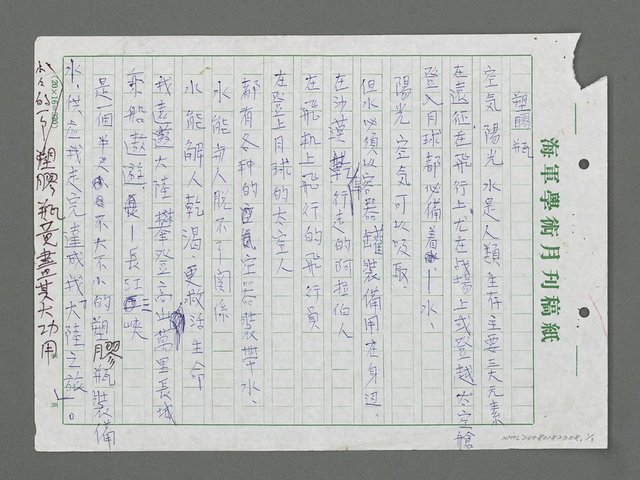 海軍學術月刊稿紙
塑膠瓶
空氣 陽光 水是人類生存主要三大元素
在遠征在飛行上尤在戰場上或登越太空艙
登入月球都必備着—水、
陽光 空氣可以吸取
但水必須以容器罐裝備用在身边、
在沙漠行走的阿拉伯人
在飛机上飛行的飛行員
在登上月球的太空人
都有各种的空器裝帶水、
水能与人脫不了関係
水能解人乾渴、更救活生命
我遠遊大陸 攀登高山萬里長城
乘船遨遊、長江三峽
是一個半尺不大不小的塑膠瓶裝備
水、供應我走完達成我「大陸之旅」。
小小的塑膠瓶竟盡其大功用
(20×16=320)
NMTL20080182508, 1/1